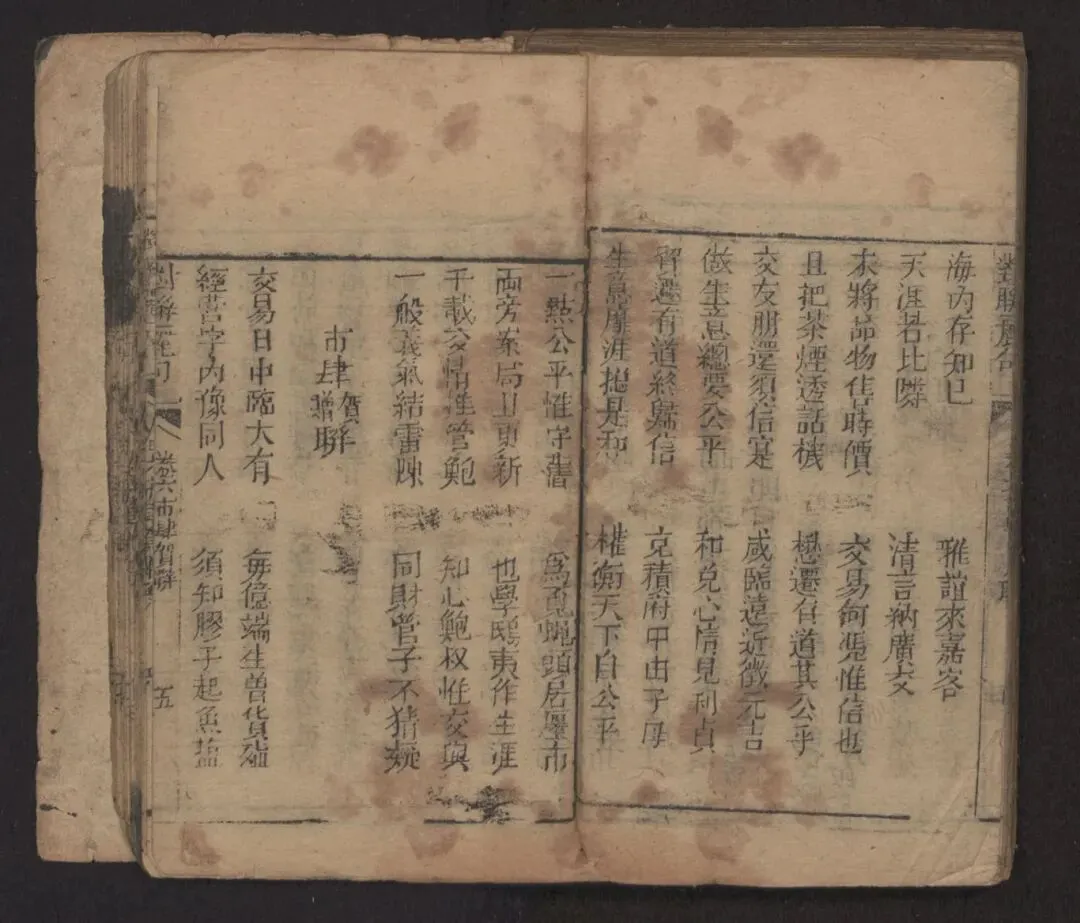 海內存知已　雅誼來嘉客
天涯若比隣　清言納廣交
未將品物售時價　交易何憑惟信也
且把茶煙透話機　懋遷有道其公乎
交友朋還須信寔　咸臨遠近徵元吉
做生意總要公平　和兌心情見利貞
貿遷有道終歸信　克積府中由子母
生意靡涯揔是和　權衡天下自公平
一點公平惟守舊　為覓蝇頭居壥市
両旁案局且更新　也學鴟夷作生涯
千載交情惟管鮑　知心鮑叔惟交與
一般義氣結雷陳　同財管子不猜疑
市肆增賀聯
交易日中臨大有　每億端生曽貨殖
經營宇內像同人　須知膠子起魚盐
卷六市肆賀聯　五